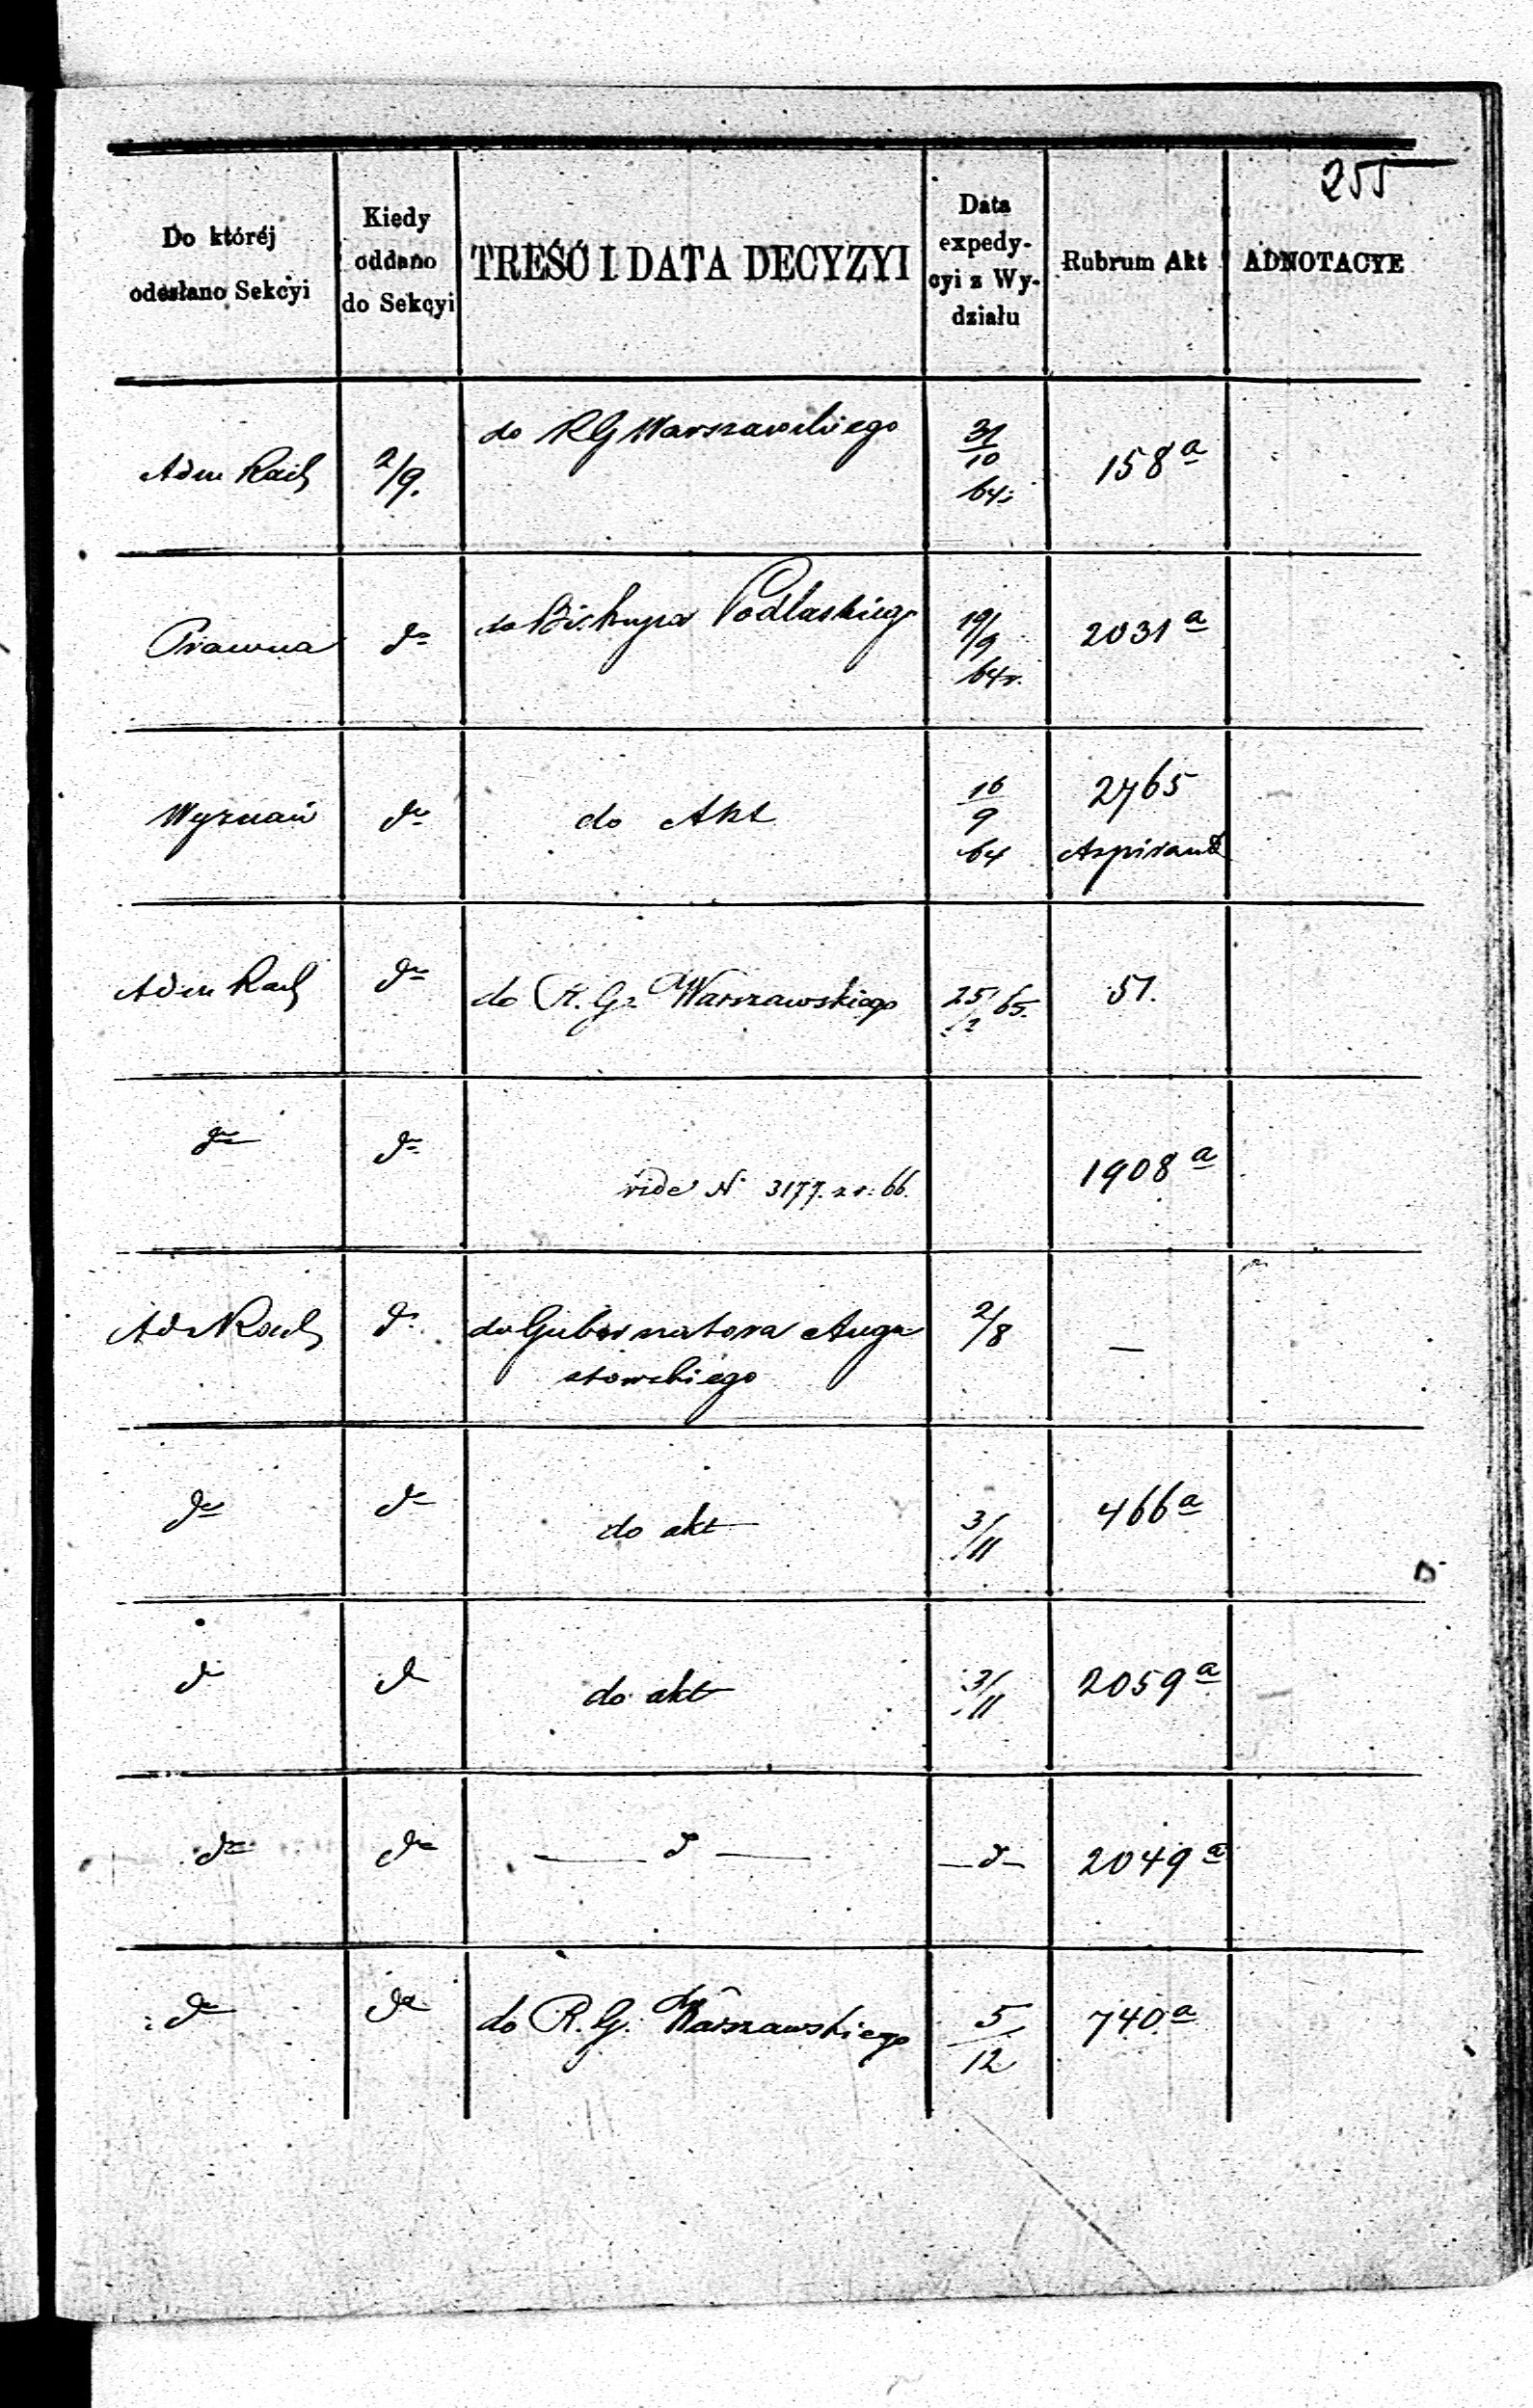 255
Do któréj odesłano Sekcyi | Kiedy oddano do Sekcyi | TREŚĆ I DATA DECYZYI | Data expedycyi z Wydziału | Rubrum Akt | ADNOTACYE
Adm Rach | 2/9. | do RG Warszawskiego | 31/10 64 | 158 a
Prawna | do | do Biskupa Podlaskiego | 19/9 64 r. | 2031 a
Wyznań | do | do Akt | 16/9 64 | 2765 Aspirant
Adm Rach | do | do R. G. Warszawskiego | 25/2 65. | 51.
do | do | vide N 3177. z r: 66. | | 1908 a
Ad Rach | do | do Gubernatora Augustowskiego | 2/8 | —
do | do | do akt | 3/11 | 466 a
do | do | do akt | 3/11 | 2059 a
do | do | — d — | — d — | 2049 a
do | do | do R. G. Warszawskiego | 5/12 | 740 a